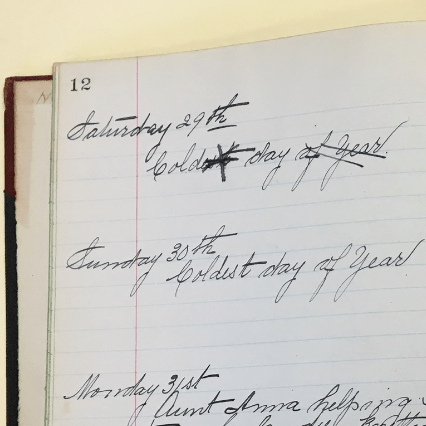 12
Saturday 29th
Cold day of Year.
Sunday 30th
Coldest day of Year
Monday 31st
Aunt Anna helping